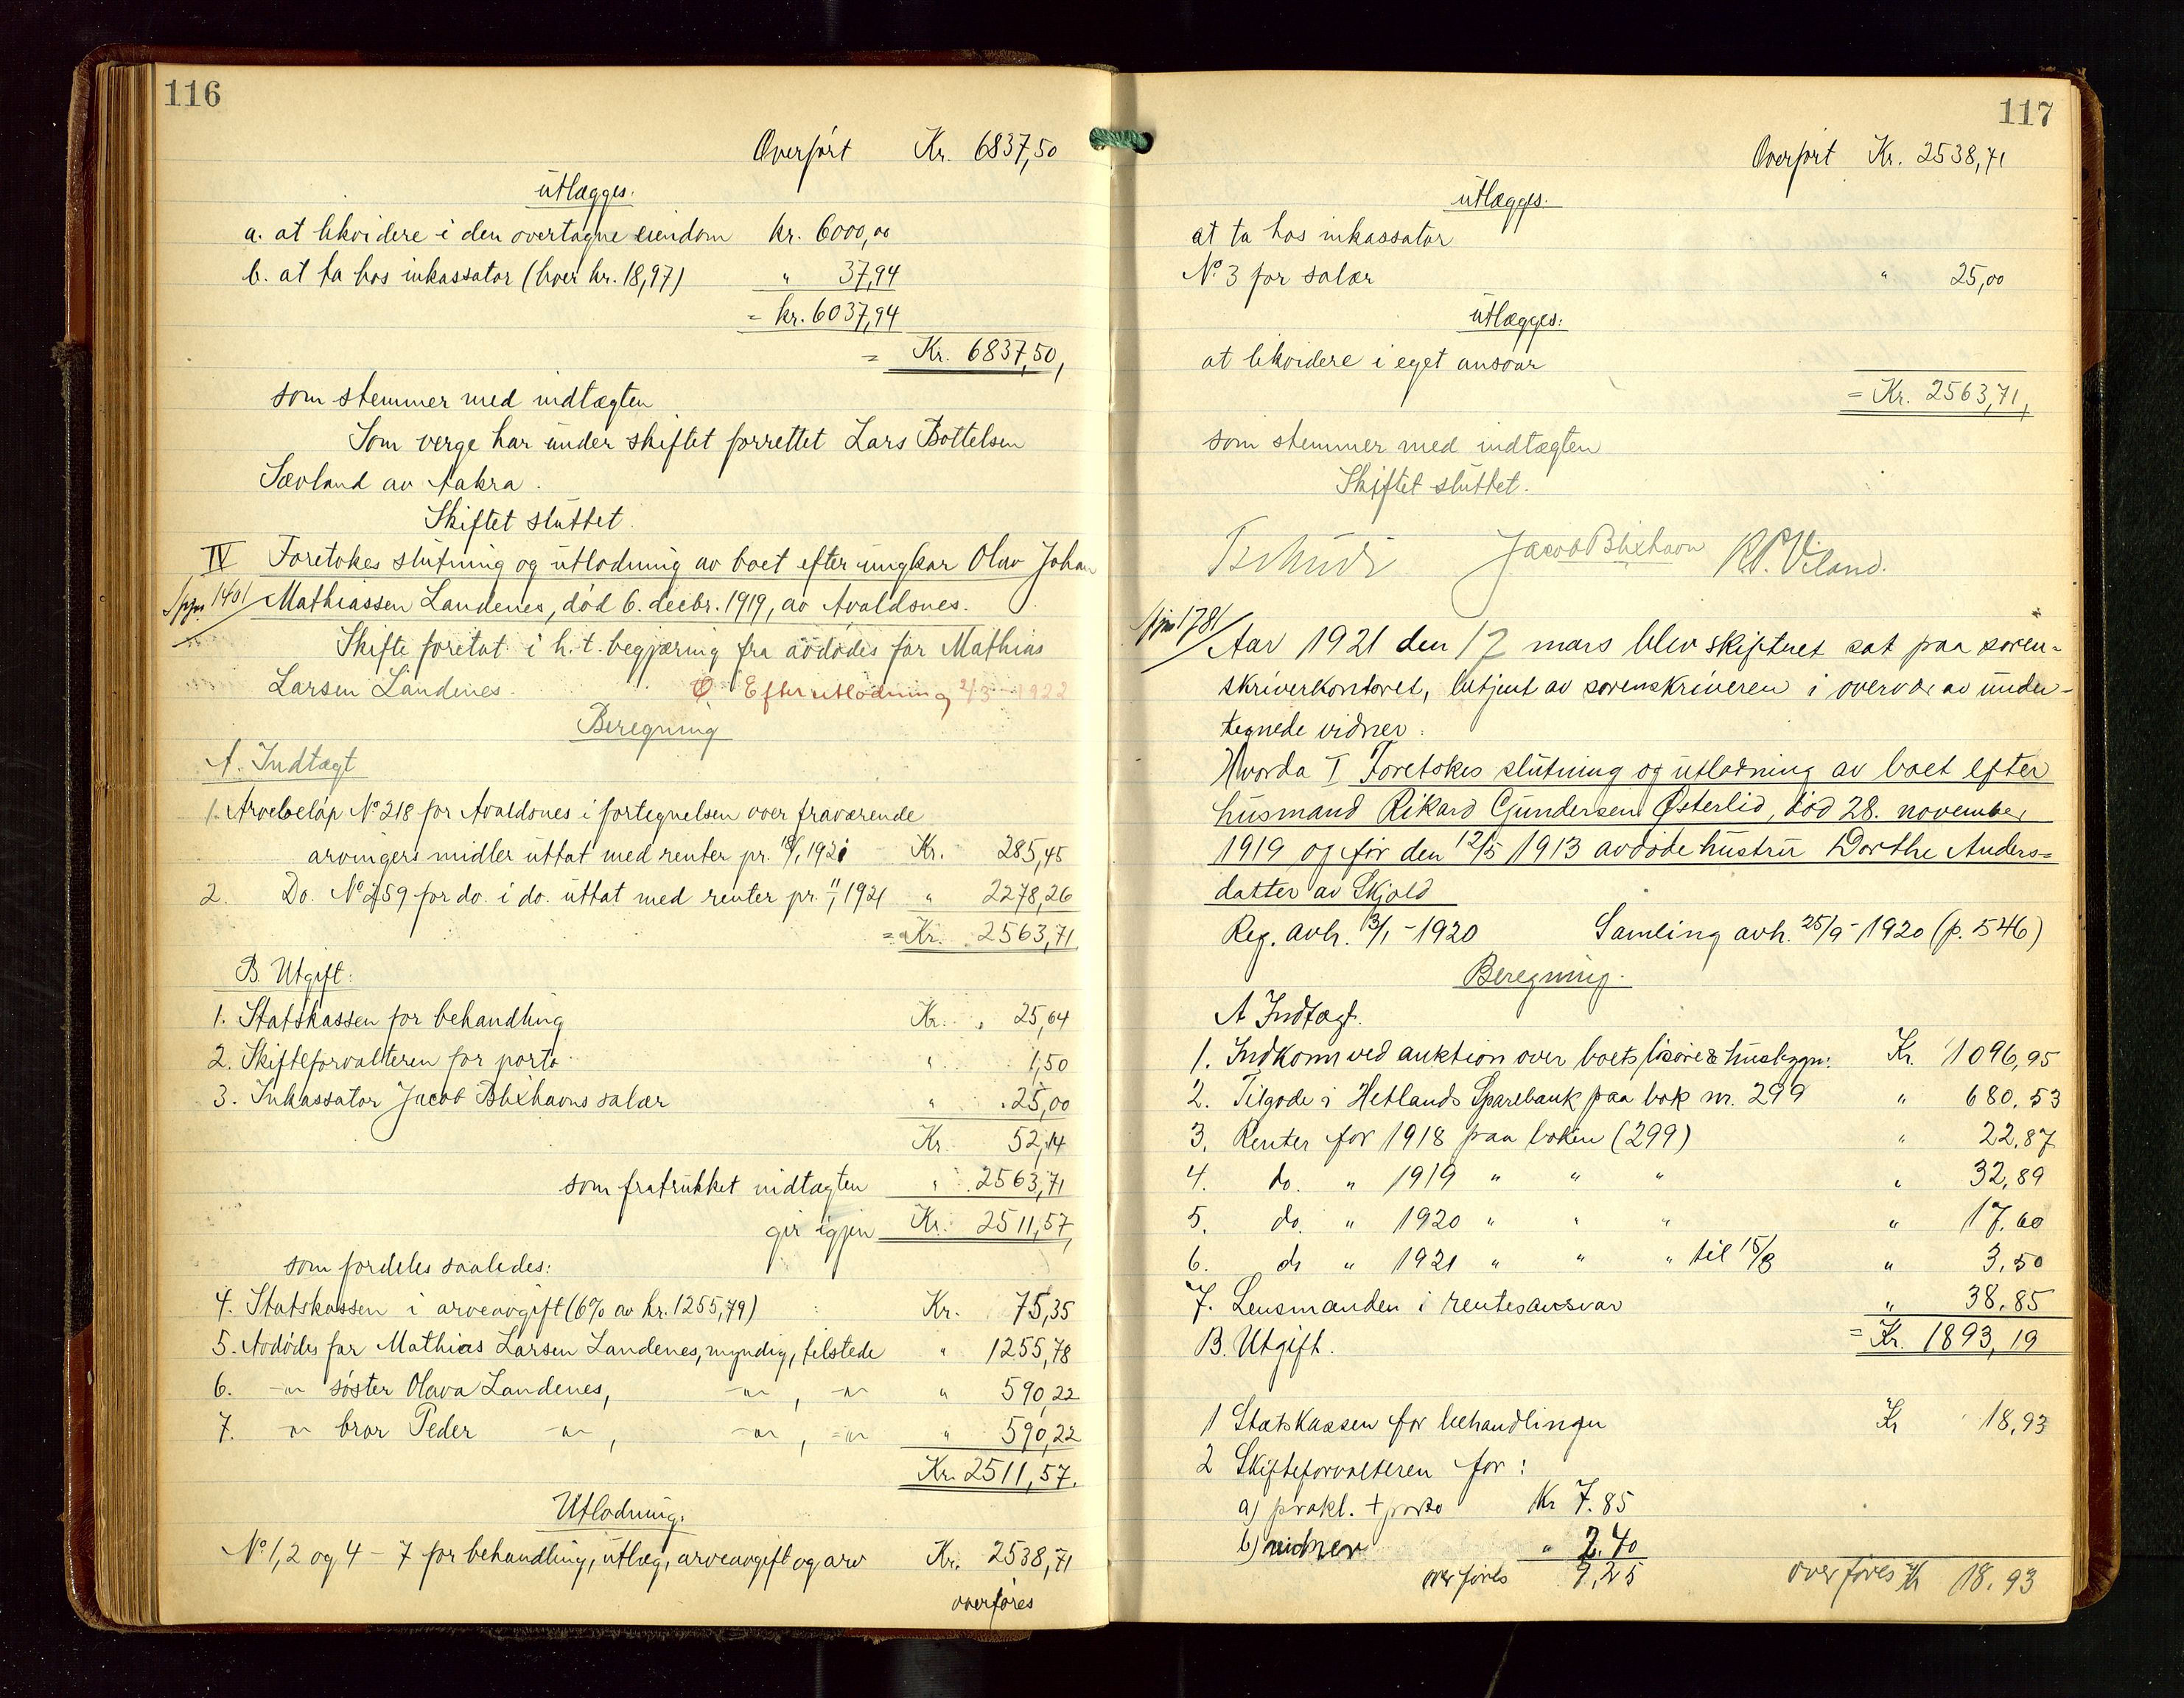 116
Overført Kr. 6837,50
utlægges.
a. at likvidere i den overtagne eiendom kr. 6000,00
b. at ta hos inkassator (hver kr. 18,97) " 37,94
= kr. 6037,94
= Kr. 6837,50,
som stemmer med indtægten
Som verge har under skiftet forrettet Lars Bottelsen
Sævland av Aakra.
Skiftet sluttet.
IV Foretokes slutning og utlodning av boet efter ungkar Olav Johan
Spjn 1401 Mathiassen Landenes, død 6. decbr. 1919, av Avaldsnes.
Skifte foretat i h. t. begjæring fra avdødes far Mathias
Larsen Landenes. Efterutlodning 2/3 1922
Beregning
A. Indtægt
1. Arvebeløp No 218 for Avaldsnes i fortegnelsen over fraværende
arvingers midler uttat med renter pr. 18/1 1921 Kr. 285,45
2. Do. No 259 for do. i do. uttat med renter pr. " 1921 " 2278,26
= Kr. 2563,71
B. Utgift:
1. Statskassen for behandling Kr. 25,64
2. Skifteforvalteren for porto " 1,50
3. Inkassator Jacob Blixhavns salær " 25,00
Kr. 52,14
som fratrukket indtægten " 2563,71
gir igjen Kr. 2511,57,
som fordeles saaledes:
4. Statskassen i arveavgift (6% av kr. 1255,79) Kr. 75,35
5. Avdødes far Mathias Larsen Landenes, myndig, tilstede " 1255,78
6. -"- søster Olava Landenes, -"-, -"- " 590,22
7. -"- bror Peder -"-, -"-, -"- " 590,22
Kr. 2511,57.
Utlodning.
No 1, 2 og 4 - 7 for behandling, utlæg, arveavgift og arv Kr. 2538,71
overføres
117
Overført Kr. 2538,71
utlægges.
at ta hos inkassator
No 3 for salær " 25,00
utlægges:
at likvidere i eget ansvar
= Kr. 2563,71,
som stemmer med indtægten
Skiftet sluttet.
Tschudi Jacob Blixhavn R. P. Viland.
Spjn 1781 Aar 1921 den 17 mars blev skifteret sat paa soren-
skriverkontoret, betjent av sorenskriveren i overvær av under-
tegnede vidner.
Hvorda I Foretokes slutning og utlodning av boet efter
husmand Rikard Gundersen Østerlid, død 28. november
1919 og før den 12/5 1913 avdøde hustru Dorthe Anders-
datter av Skjold
Reg. avh. 13/1 - 1920 Samling avh. 25/9 - 1920 (p. 546)
Beregning.
A Indtægt.
1. Indkom ved auktion over boets løsøre & husbygn: Kr. 1096,95
2. Tilgode i Hetlands Sparebank paa bok nr. 299 " 680,53
3. Renter for 1918 paa boken (299) " 22,87
4. do. " 1919 " " " " 32,89
5. do. " 1920 " " " " 17,60
6. do " 1921 " " " til 15/3 " 3,50
7. Lensmanden i rentesansvar " 38,85
= Kr. 1893,19
B. Utgift.
1 Statskassen for behandlingen Kr 18,93
2 Skifteforvalteren for:
a) prokl. + porto Kr 7.85
b) vidner " 2.40
overføres 9,25 overføres Kr 18.93